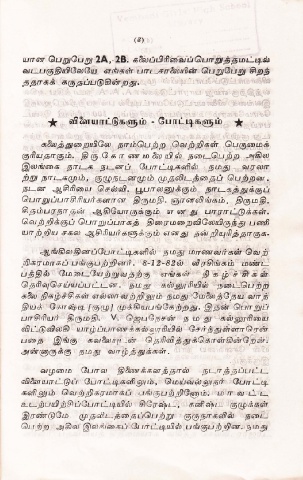 (5)
யான பெறுபேறு 2A, 2B. கலைப்பிரிவைப்பொறுத்தமட்டில்
வடபகுதியிலேயே எங்கள் பாடசாலையின் பெறுபேறு சிறந்
ததாகக் கருதப்படுகின்றது.
★ விளையாட்டுகளும் - போட்டிகளும் ★
கலைத்துறையிலே நாம்பெற்ற வெற்றிகள் பெருமைக்
குரியதாகும். திருகோணமலையில் நடைபெற்ற அகில
இலங்கை நாடக நடனப் போட்டிகளில் நமது வரலா
ற்று நாடகமும், குழுநடனமும் முதலிடத்தைப் பெற்றன.
நடன ஆசிரியை செல்வி, பூபாலனுக்கும், நாடகத்துக்குப்
பொறுப்பாசிரியர்களான திருமதி. ஞானலிங்கம், திருமதி.
சிதம்பரநாதன் ஆகியோருக்கும் எனது பாராட்டுக்கள்.
வெற்றிக்குப்பொறுப்பாகத் திரைமறைவிலேயிருந்து பணி
யாற்றிய சகல ஆசிரியர்களுக்கும் எனது நன்றியுரித்தாகுக.
ஆங்கிலதினப்போட்டிகளில் நமது மாணவர்கள் வெற்
றிகரமாகப்பங்குபற்றினர். 6-12-82ல் வீரசிங்கம் மண்ட
பத்தில் மேடையேற்றுவதற்கு எங்கள் நிகழ்ச்சிகள்
தெரிவுசெய்யப்பட்டன. நமது கல்லூரியில் நடைபெற்ற
கலை நிகழ்ச்சிகள் எல்லாவற்றிலும் நமது மேலைத்தேய வாத்
தியக் கோஷ்டி [குழு] முக்கியபங்கேற்றது. இதன் பொறுப்
பாசிரியர் திருமதி. V. ஜெபநேசன் நமது கல்லூரியை
விட்டுவிலகி யாழ்ப்பாணக்கல்லூரியில் சேர்ந்துள்ளாரென்
பதை இங்கு கவலையுடன் தெரிவித்துக்கொள்கின்றேன்.
அன்னாருக்கு நமது வாழ்த்துக்கள்.
வழமை போல திணைக்களத்தால் நடாத்தப்பட்ட
விளையாட்டுப் போட்டிகளிலும், மெய்வல்லுநர் போட்டி
களிலும் வெற்றிகரமாகப் பங்குபற்றினோம். மாவட்ட
உடற்பயிற்சிப்போட்டியில் சிரேஷ்ட, கனிஷ்ட குழுக்கள்
இரண்டுமே முதலிடத்தைப்பெற்று குருநாகலில் நடை
பெற்ற அகில இலங்கைப்போட்டியில் பங்குபற்றின. நமது